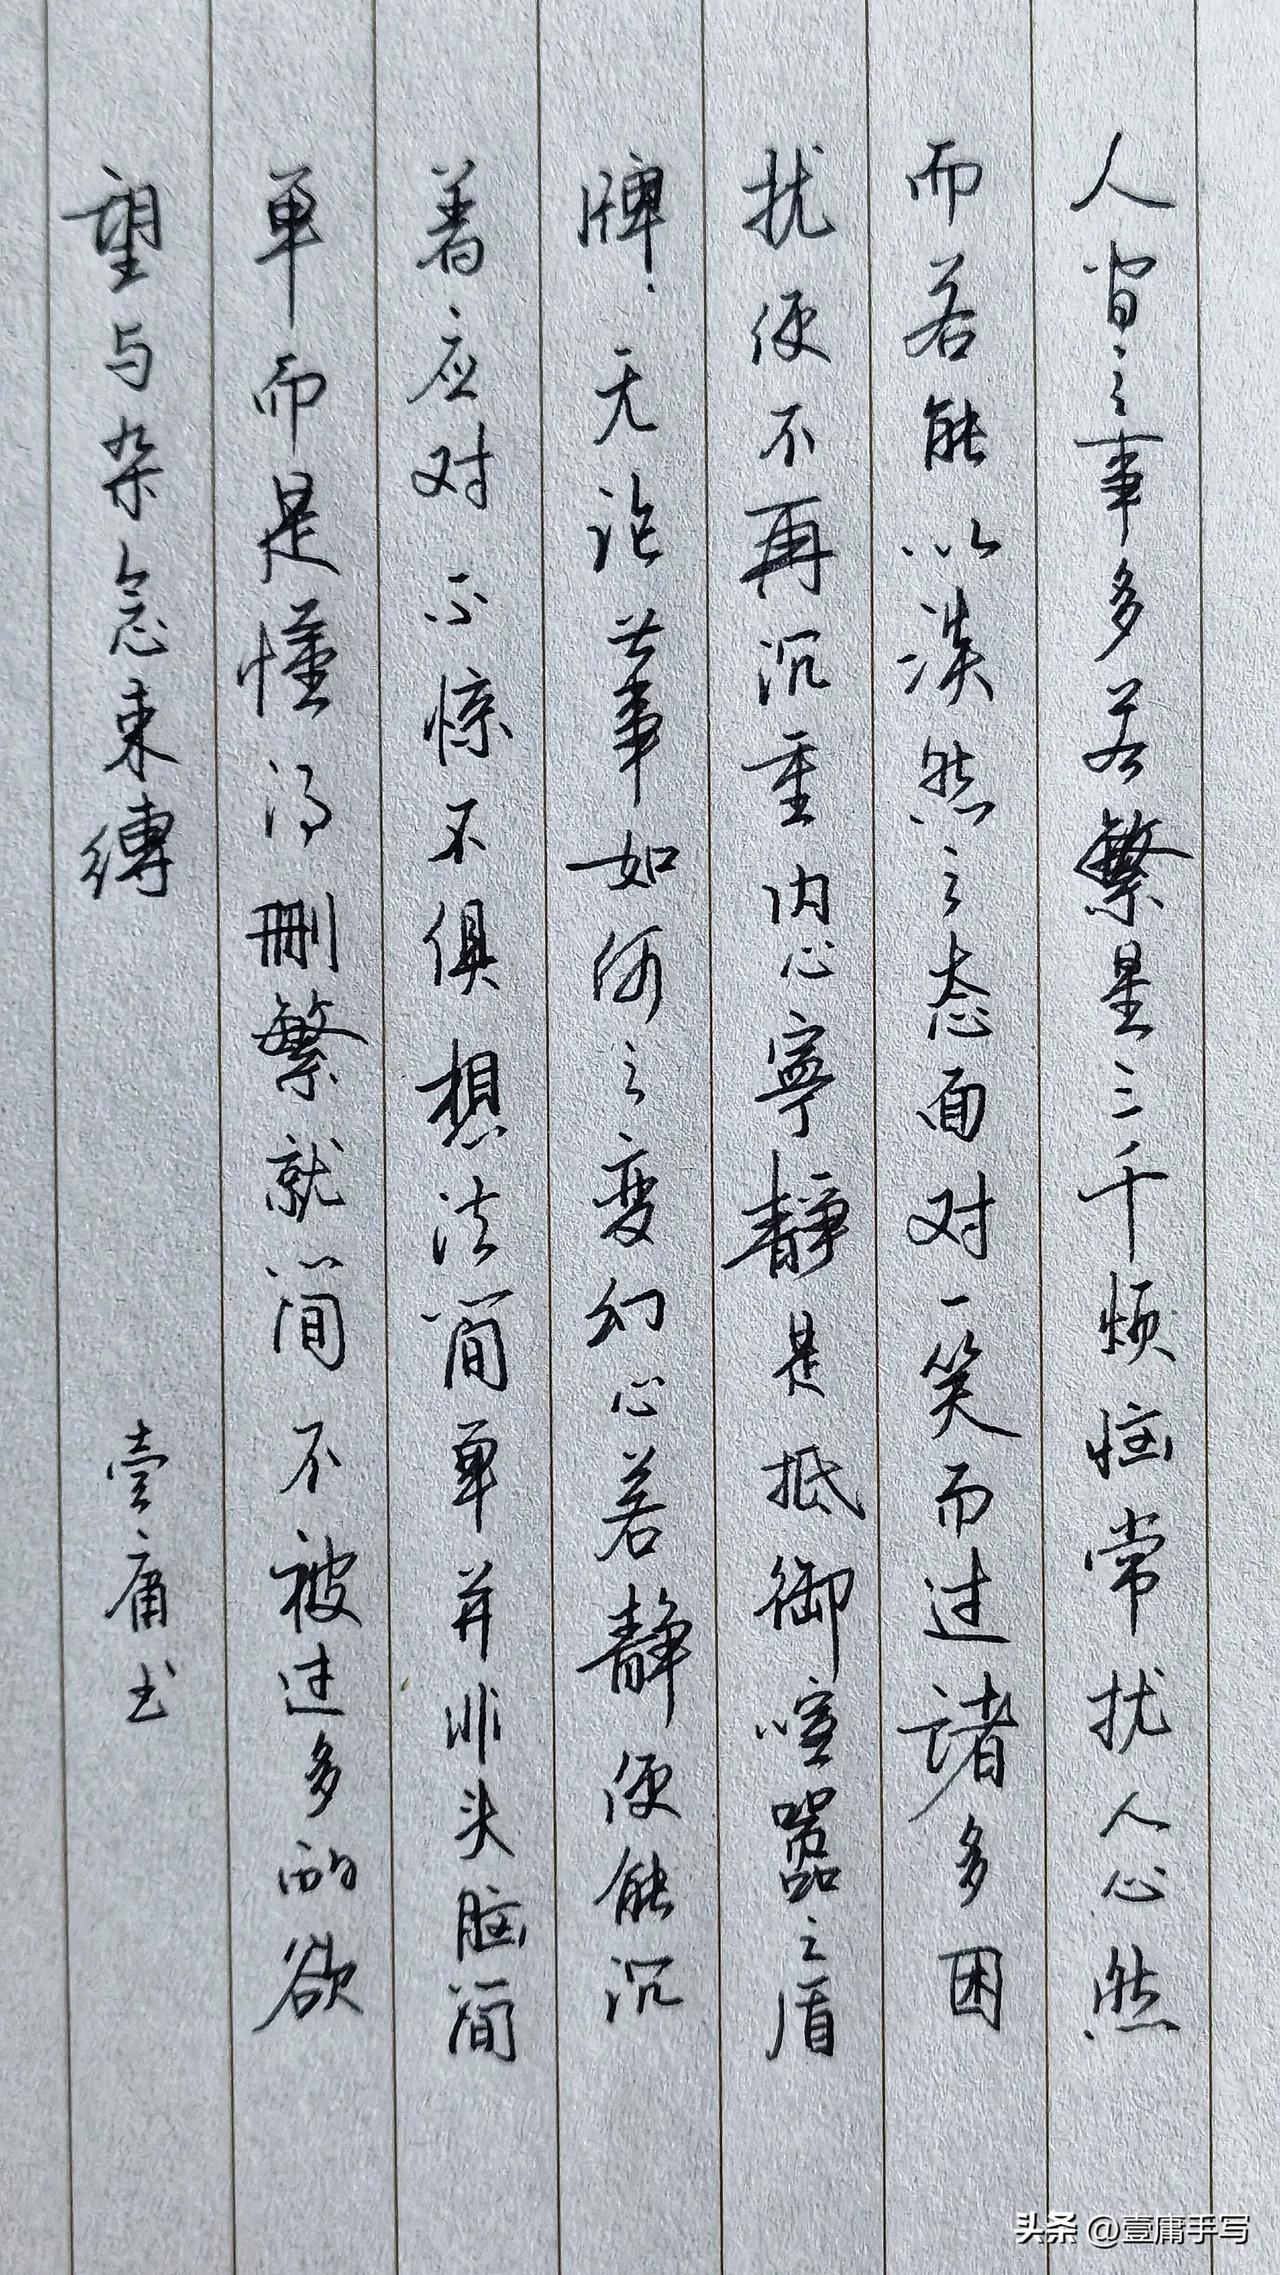 人间之事多若繁星三千烦恼常扰人心然
而若能以淡然之态面对一笑而过诸多困
扰便不再沉重内心宁静是抵御喧嚣之盾
牌.无论世事如何之变幻心若静便能沉
着应对不惊不俱想法简单并非头脑简
单而是懂得删繁就简不被过多的欲
望与杂念束缚
壹庸书
头条 @壹庸手写